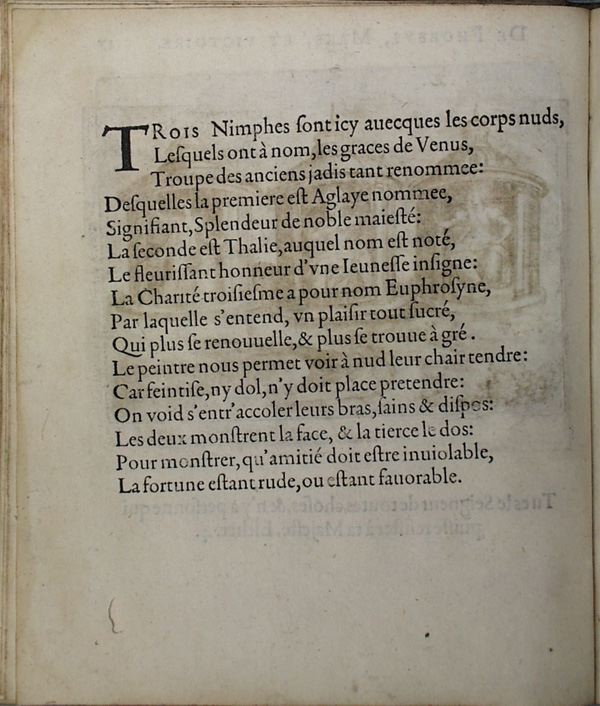 TROIS Nimphes ſont icy auecques les corps nuds,
Leſquels ont à nom, les graces de Venus,
Troupe des anciens jadis tant renommee:
Deſquelles la premiere eſt Aglaye nommee,
Signifiant, Splendeur de noble maieſté:
La ſeconde eſt Thalie, auquel nom eſt noté,
Le fleuriſſant honneur d'vne Ieuneſſe inſigne:
La Charité troiſieſme a pour nom Euphroſyne,
Par laquelle s'entend, vn plaiſir tout ſucré,
Qui plus ſe renouuelle, & plus ſe trouue à gré.
Le peintre nous permet voir à nud leur chair tendre:
Car feintiſe, ny dol, n'y doit place pretendre:
On void s'entr'accoler leurs bras, ſains & diſpos:
Les deux monſtrent la face, & la tierce le dos:
Pour monſtrer, qu'amitié doit eſtre inuiolable,
La fortune eſtant rude, ou eſtant fauorable.